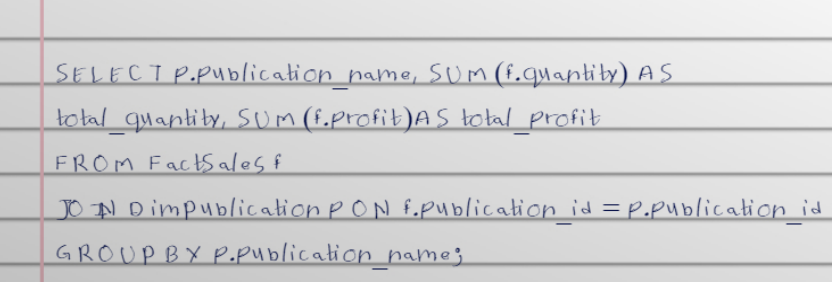 SELECT P.Publication_name, SUM (f.quantity) AS
total_quantity, SUM (f.profit)AS total_profit
FROM FactSales f
JOIN DimPublication P ON f.publication_id = P.publication_id
GROUP BY P.Publication_name;